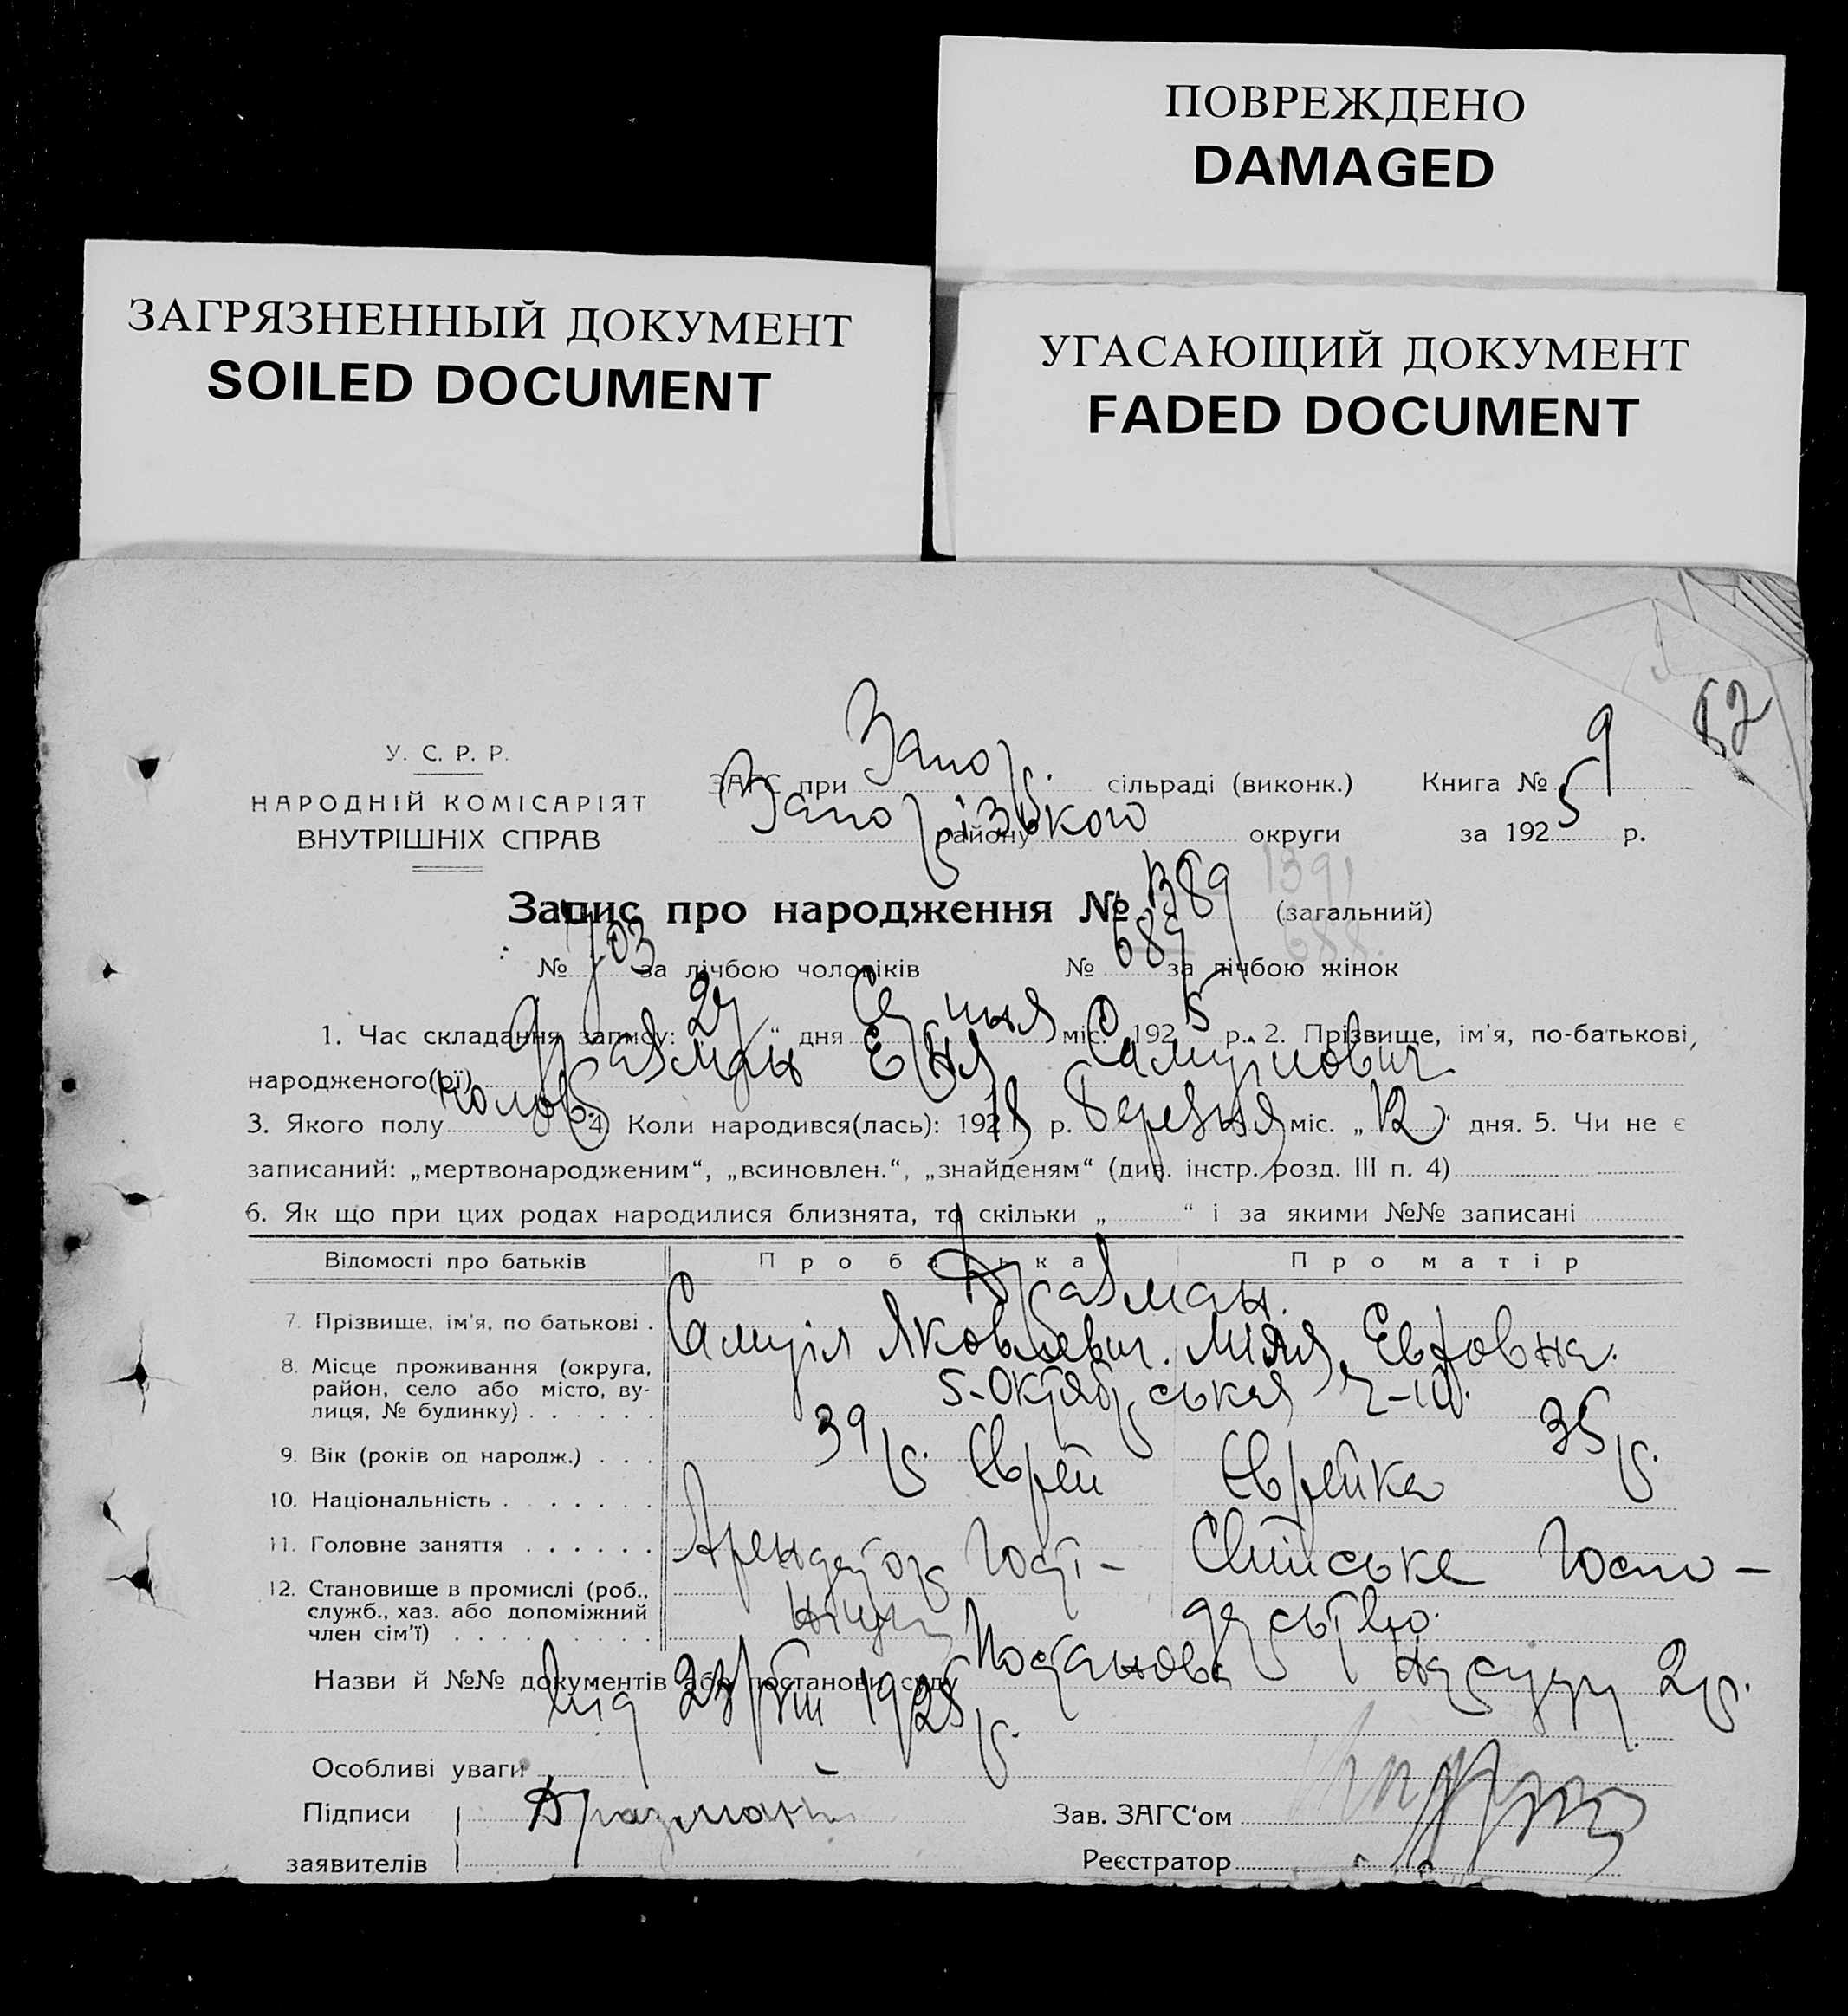 ПОВРЕЖДЕНО
DAMAGED
ЗАГРЯЗНЕННЫЙ ДОКУМЕНТ
SOILED DOCUMENT
УГАСАЮЩИЙ ДОКУМЕНТ
FADED DOCUMENT
У. С. Р. Р.
НАРОДНІЙ КОМІСАРІЯТ
ВНУТРІШНІХ СПРАВ
ЗАГС при Запор. сільраді (виконк.) Книга № 9
Запорізького району округи за 1925 р.
Запис про народження № 1389 1391 (загальний)
№ 703 за лічбою чоловіків № 687 688. за лічбою жінок
1. Час складання запису: „27“ дня Серпня міс. 1925 р. 2. Прізвище, ім'я, по-батькові,
народженого(ої) Дразман Самуїлович
3. Якого полу чолов. 4) Коли народився(лась): 192 р. Березня міс. „12“ дня. 5. Чи не є
записаний: „мертвонародженим“, „всиновлен.“, „знайденям“ (див. інстр. розд. III п. 4)
6. Як що при цих родах народилися близнята, то скільки „ “ і за якими №№ записані
Відомості про батьків Про батька Про матір
Дразман.
7. Прізвище, ім'я, по батькові . Самуіл Яковлевич.
8. Місце проживання (округа, район, село або місто, вулиця, № будинку) . . . . . .
9. Вік (років од народж.) . . . 39 р. 35 р.
10. Національність . . . . . . . Єврей Єврейка
11. Головне заняття . . . . . . Арендатор Гості- Госпо-
12. Становище в промислі (роб., служб., хаз. або допоміжний член сім'ї) . . . . . . . . . ниці дарство.
Назви й №№ документів або постанови суду Постанова Нарсуду 2 р.
від 23/VIII 1925 р.
Особливі уваги –
Підписи Дразман Зав. ЗАГС‘ом
заявителів Реєстратор